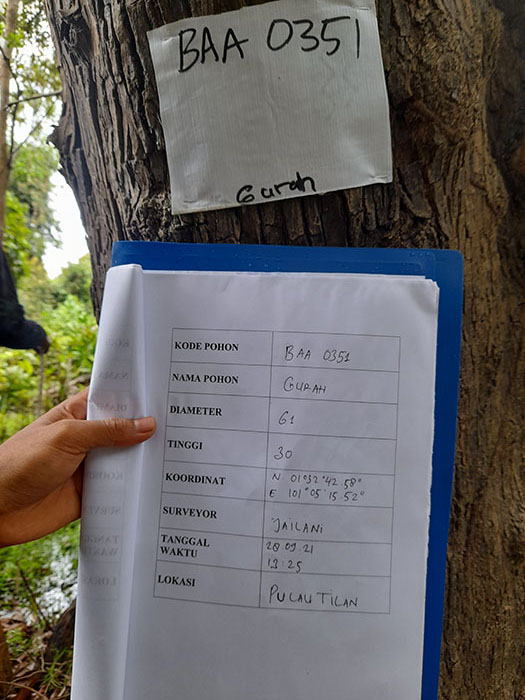 BAA 0351
Gurah
KODE POHON BAA 0351
NAMA POHON GURAH
DIAMETER 61
TINGGI 30
KOORDINAT N 01°32'42.58"
E 101°05'15.52"
SURVEYOR JAILANI
TANGGAL WAKTU 28.09.21
13:25
LOKASI PULAU TILAN